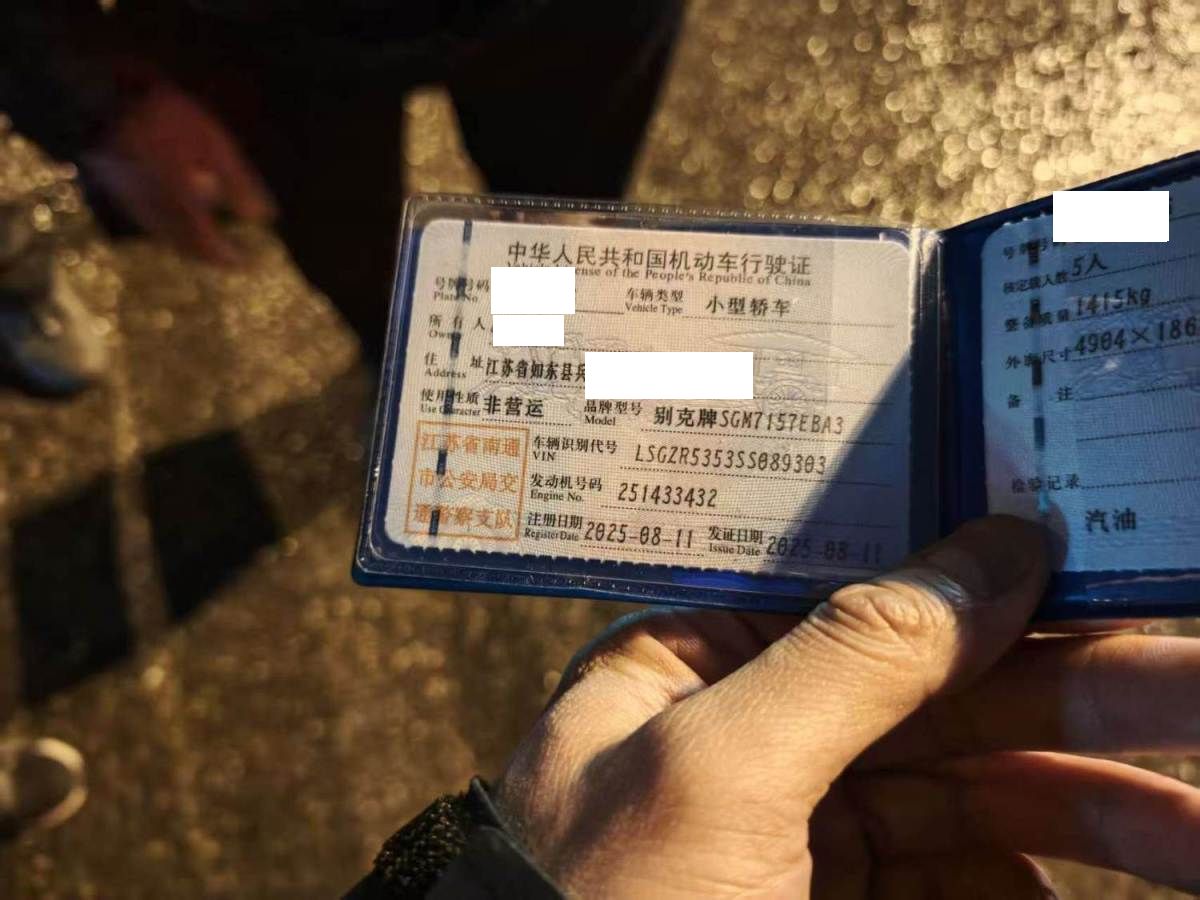 中华人民共和国机动车行驶证
ense of the People's Republic of China
号牌号码
Plate No.
车辆类型 小型轿车
Vehicle Type
所有人
住址 江苏省如东县
Address
使用性质 非营运
Use Character
品牌型号 别克牌SGM7157EBA3
Model
江苏省南通
市公安局交
通警察支队
车辆识别代号 LSGZR5353SS089303
VIN
发动机号码 251433432
Engine No.
注册日期 2025-08-11
Register Date
发证日期 2025-08-11
Issue Date
号牌号
核定载人数 5人
整备质量 1415kg
外廓尺寸 4904×186
备注
检验记录
汽油